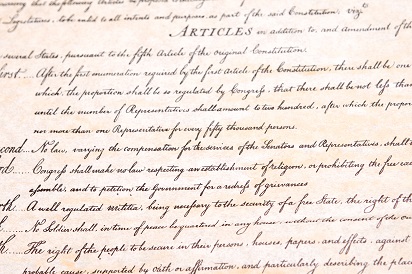 ing this the following Articles
Legislatures, to be valid to all intents and purposes, as part of the said Constitution, viz.
ARTICLES in addition to, and Amendment of the
several States, pursuant to the fifth Article of the original Constitution.
irst... After the first enumeration required by the first Article of the Constitution, there shall be one
which, the proportion shall be so regulated by Congress, that there shall be not less than
until the number of Representatives shall amount to two hundred, after which the propor
nor more than one Representative for every fifty thousand persons.
econd... No law, varying the compensation for the services of the Senators and Representatives, shall
rd..... Congress shall make no law respecting an establishment of religion, or prohibiting the free exe
assemble, and to petition the Government for a redress of grievances
th.. A well regulated militia, being necessary to the security of a free State, the right of th
No Soldier shall, in time of peace be quartered in any house, without the consent of the
th.... The right of the people to be secure in their persons, houses, papers, and effects, against
probable cause, supported by Oath or affirmation, and particularly describing the plac